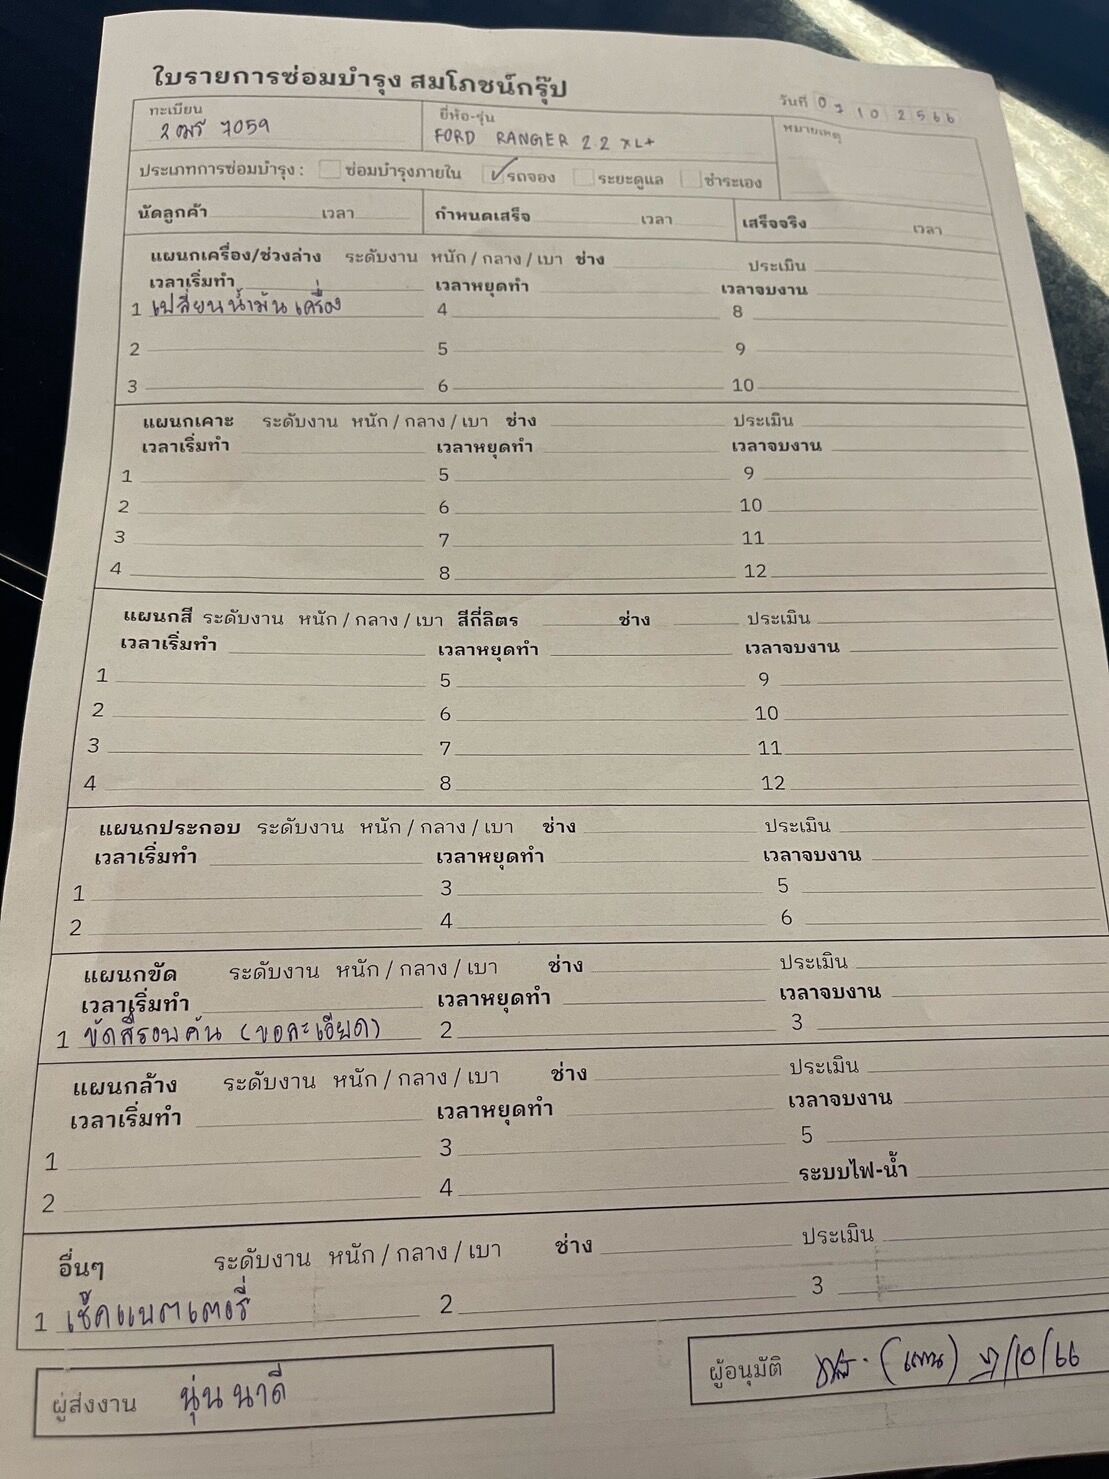 ใบรายการซ่อมบำรุง สมโภชน์กรุ๊ป
วันที่ 0 7 1 0 2 5 6 6
ทะเบียน ยี่ห้อ-รุ่น หมายเหตุ
7059 FORD RANGER 2.2 XL+
ประเภทการซ่อมบำรุง : ซ่อมบำรุงภายใน ✓ รถจอง ระยะดูแล ชำระเอง
นัดลูกค้า เวลา กำหนดเสร็จ เวลา เสร็จจริง เวลา
แผนกเครื่อง/ช่วงล่าง ระดับงาน หนัก / กลาง / เบา ช่าง ประเมิน
เวลาเริ่มทำ เวลาหยุดทำ เวลาจบงาน
1 เปลี่ยนน้ำมันเครื่อง 4 8
2 5 9
3 6 10
แผนกเคาะ ระดับงาน หนัก / กลาง / เบา ช่าง ประเมิน
เวลาเริ่มทำ เวลาหยุดทำ เวลาจบงาน
1 5 9
2 6 10
3 7 11
4 8 12
แผนกสี ระดับงาน หนัก / กลาง / เบา สีกี่ลิตร ช่าง ประเมิน
เวลาเริ่มทำ เวลาหยุดทำ เวลาจบงาน
1 5 9
2 6 10
3 7 11
4 8 12
แผนกประกอบ ระดับงาน หนัก / กลาง / เบา ช่าง ประเมิน
เวลาเริ่มทำ เวลาหยุดทำ เวลาจบงาน
1 3 5
2 4 6
แผนกขัด ระดับงาน หนัก / กลาง / เบา ช่าง ประเมิน
เวลาเริ่มทำ เวลาหยุดทำ เวลาจบงาน
1 ขัดสีรอบคัน (ขอละเอียด) 2 3
แผนกล้าง ระดับงาน หนัก / กลาง / เบา ช่าง ประเมิน
เวลาเริ่มทำ เวลาหยุดทำ เวลาจบงาน
1 3 5
2 4 ระบบไฟ-น้ำ
อื่นๆ ระดับงาน หนัก / กลาง / เบา ช่าง ประเมิน
1 เช็คแบตเตอรี่ 2 3
ผู้ส่งงาน นุ่น นาดี
ผู้อนุมัติ 7/10/66